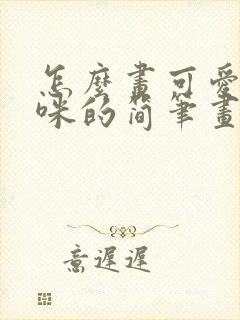 怎麼畫可愛
咪的简笔畫
意遲遲